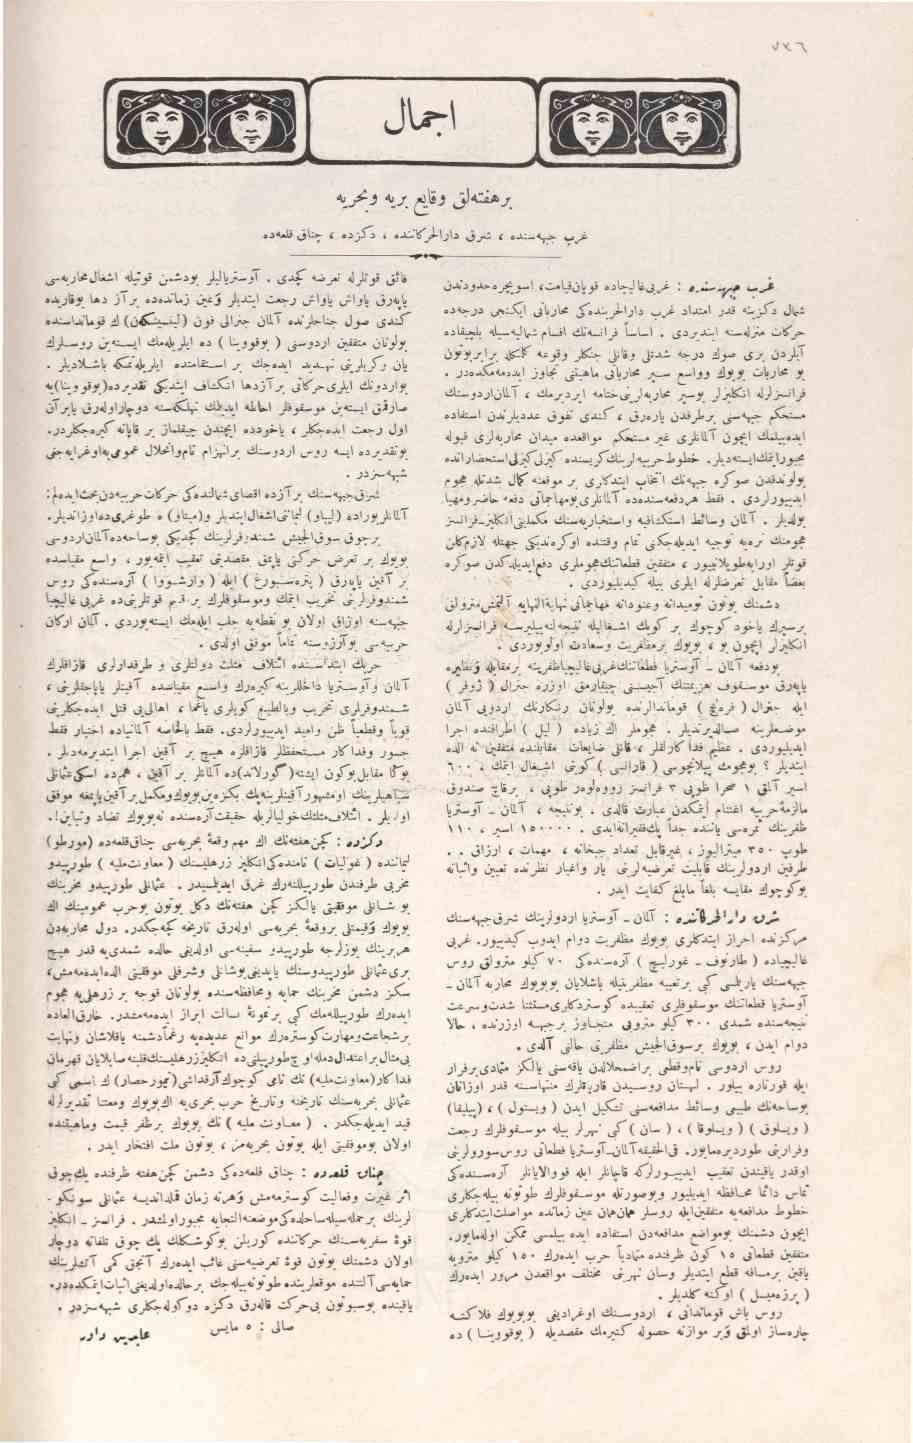 ٧٣٦
اجمال
برهفته‌لق وقايع بريه وبحريه
غرب جبهه‌سنده ، شرق دارالحركاتنده ، دكزده ، چناق قلعه‌ده
غرب جبهه‌سنده : غربى غاليچياده قوپان قيامت، اسويچره حدودندن
شمال دكزينه قدر امتداد غرب دارالحربنده‌كى محارباتى ايكنجى درجه‌ده
حركات منزله‌سنه اينديردى . اساساً فرانسه‌نك اقسام شماليه‌سيله بلچيقاده
آيلردن برى صوك درجه شدتلى وقانلى جنكلر وقوعه كلمكله برابر بوتون
بو محاربات بويوك وواسع سپر محارباتى ماهيتنى تجاوز ايده‌مه‌مكده‌در .
فرانسزلرله انكليزلر بوسپر محاربه‌لرينى ختامه ايرديرمك ، آلمان اردوسنك
مستحكم جبهه‌سنى برطرفدن ياره‌رق ، كندى تفوق عدديلرندن استفاده
ايده‌بيلمك ايچون آلمانلرى غير مستحكم مواقعده ميدان محاربه‌لرى قبوله
مجبور ايتمك ايسته‌ديلر. خطوط حربيه‌لرينك كريسنده كيزلى كيزلى استحضاراتده
بولوندقدن صوكره جبهه‌نك انتخاب ايتدكلرى بر موقعنه كمال شدتله هجوم
ايدييورلردى . فقط هردفعه‌سنده‌ده آلمانلرى بومهاجماتى دفعه حاضر ومهيا
بولديلر . آلمان وسائط استكشافيه واستخباريه‌سنك مكمليتى انكليز ـ فرانسز
هجومنك نره‌يه توجيه ايديله‌جكنى تمام وقتنده اوكره‌نديكى جهتله لازم‌كلن
قوتلر اورايه طوپلانييور ، متفقين قطعاتنك هجوملرى دفع ايديلدكدن صوكره
بعضاً مقابل تعرضلرله ايلرى بيله كيديلييوردى .
دشمنك بوتون نوميدانه وعنودانه مهاجماتى نهاية‌النهايه آلتمش متره‌لق
برسپرك ياخود كوچوك بر كويك اشغاليله نتيجه‌لنه‌بيليرسه فرانسزلرله
انكليزلر ايچون بو ، بويوك برمظفريت وسعادت اولويوردى .
بودفعه آلمان ـ آوستريا قطعاتنك غربى غاليچيا ظفرينه برمقابله ونظيره
ياپه‌رق موسقوف هزيمتنك آجيسنى چيقارمق اوزره جنرال ( ژوفر )
ايله جنرال ( فره‌نچ ) قوماندالرنده بولونان رنكارنك اردويى آلمان
موضعلرينه صالديرتديلر. هجوملر اك زياده ( ليل ) اطرافنده اجرا
ايديلييوردى . عظيم فداكارلقلر ، قانلى ضايعات مقابلنده متفقين نه الده
ايتديلر ؟ بوهجومك پيلانچوسى ( قارانسى ) كوينى اشغال ايتمك ، ٦٠٠
اسير آلمق ١ صحرا طوپى ٣ فرانسز رووه‌لوه‌ر طوپى ، برقاچ صندوق
مالزمهٔ حربيه اغتنام ايتمكدن عبارت قالدى . بونتيجه ، آلمان ـ آوستريا
ظفرينك ثمره‌سى ياننده جداً پك فقيرانه ايدى . ١٥٠٠٠٠ اسير ، ١١٠
طوپ ٣٥٠ ميتراليوز ، غيرقابل تعداد جبخانه ، مهمات ، ارزاق . .
طرفين اردولرينك قابليت تعرضيه‌لرينى يار واغيار نظرنده تعيين واثباته
بوكوچوك مقايسه بلغاً مابلغ كفايت ايدر .
شرق دارالحركاتنده : آلمان ـ آوستريا اردولرينك شرق جبهه‌سنك
مركزنده احراز ايتدكلرى بويوك مظفريت دوام ايدوب كيدييور. غربى
غاليچياده ( طارنوف ـ غورليچ ) آره‌سنده‌كى ٧٠ كيلو متره‌لق روس
جبهه‌سنك ياريلمسى كبى برتعبيه مظفريتيله باشلايان بو بويوك محاربه آلمان ـ
آوستريا قطعاتنك موسقوفلرى تعقيبده كوستردكلرى مستثنا شدت وسرعت
نتيجه‌سنده شمدى ٣٠٠ كيلو متره‌يى متجاوز برجبهه اوزرنده ، حالا
دوام ايدن ، بويوك برسوق‌الجيش مظفريتى حالنى آلدى .
روس اردوسى تام وقطعى براضمحلالدن ياقه‌سنى يالكز متمادى برفرار
ايله قورتاره بيلور . لهستان روسيدن قارپاتلرك منتهاسنه قدر اوزانان
بوساحه‌نك طبيعى وسائط مدافعه‌سنى تشكيل ايدن ( ويستول ) ، (پيليقا)
( ويسلوق ) ( ويسلوقا ) ، ( سان ) كبى نهرلر بيله موسقوفلرك رجعت
وفرارينى طوردرمه‌مايور. فى‌الحقيقه آلمان ـ آوستريا قطعاتى روس سورولرينى
اوقدر ياقيندن تعقيب ايدييورلركه قاچانلر ايله قووالايانلر آره‌سنده‌كى
تماس دائما محافظه ايديليور وبوصورتله موسقوفلرك طوتونه بيله‌جكلرى
خطوط مدافعه‌يه متفقين ايله روسلر همان همان عين زمانده مواصلت ايتدكلرى
ايچون دشمنك بومواضع مدافعه‌دن استفاده ايده بيلمسى ممكن اوله‌مايور.
متفقين قطعاتى ١٥ كون ظرفنده متمادياً حرب ايده‌رك ١٥٠ كيلو متره‌يه
ياقين برمسافه قطع ايتديلر وسان نهرينى مختلف مواقعدن مرور ايده‌رك
( پرزه‌ميسل ) اوكنه كلديلر .
روس باش قوماندانى ، اردوسنك اوغراديغى بو بويوك فلاكته
چاره‌ساز اولمق وبر موازنه حصوله كتيرمك مقصديله ( بوقووينا ) ده
فائق قوتلرله تعرضه كچدى . آوستريالیلر بودشمن قوتيله اشغال محاربه‌سى
ياپه‌رق ياواش ياواش رجعت ايتديلر وعين زمانده‌ده برآز دها يوقاريده
كندى صول جناحلرنده آلمان جنرالى فون (لينسينگه‌ن) ك قومانداسنده
بولونان متفقين اردوسى ( بوقووينا ) ده ايلريله‌مك ايسته‌ين روسلرك
يان وكريلرينى تهديد ايده‌جك بر استقامتده ايلريله‌تمكه باشلاديلر .
بواردونك ايلرى حركاتى برآزدها انكشاف ايتديكى تقديرده (بوقووينا) يه
صارقمق ايسته‌ين موسقوفلر احاطه ايديلمك تهلكه‌سنه دوچار اوله‌رق يا برآن
اول رجعت ايده‌جكلر ، ياخودده ايچندن چيقلماز بر قاپانه كيره‌جكلردر.
بوتقديرده ايسه روس اردوسنك برانهزام تام وانحلال عمومى‌يه اوغرايه‌جغى
شبهه‌سزدر .
شرق جبهه‌سنك برآزده اقصاى شمالنده‌كى حركات حربيه‌دن بحث ايده‌لم:
آلمانلر بوراده (ليباو) ليماننى اشغال ايتديلر و(ميتاو) ه طوغرى‌ده اوزانديلر.
برچوق سوق‌الجيش شمندوفرلرينك كچديكى بوساحه‌ده آلمان اردوسى
بويوك بر تعرض حركتى ياپمق مقصدينى تعقيب ايتمه‌يور ، واسع مقياسده
بر آقين ياپه‌رق ( پتره‌سبورغ ) ايله ( وارشووا ) آره‌سنده‌كى روس
شمندوفرلرينى تخريب ايتمك وموسقوفلرك بر قسم قوتلرينى‌ده غربى غاليچيا
جبهه‌سنه اوزاق اولان بو نقطه‌يه جلب ايله‌مك ايسته‌يوردى . آلمان اركان
حربيه‌سى بوآرزوسنه تماماً موفق اولدى .
حربك ابتداسنده ائتلاف مثلث دولتلرى و طرفدارلرى قازاقلرك
آلمان وآوستريا داخللرينه كيره‌رك واسع مقياسده آقينلر ياپاجقلرينى ،
شمندوفرلرى تخريب وبالطبع كويلرى ياغما ، اهالى‌يى قتل ايده‌جكلرينى
قوياً وقطعياً ظن واميد ايدييورلردى. فقط بالخاصه آلمانياده اختيار فقط
جسور وفداكار مستحفظلر قازاقلره هيچ بر آقين اجرا ايتديرمه‌ديلر .
بوكا مقابل بوكون ايشته ( گورلاند) ده آلمانلر بر آقين ، همده اسكى عثمانلى
سپاهيلرينك اومشهور آقينلرينه پك بكزه‌ين بويوك ومكمل بر آقين ياپمغه موفق
اولديلر . ائتلاف مثلثك خوليالريله حقيقت آره‌سنده نه بويوك تضاد وتباين!.
دكزده : كچن هفته‌نك اك مهم وقعهٔ بحريه‌سى چناق قلعه‌ده (مورطو)
ليماننده ( غوليات ) نامنده‌كى انكليز زرهليسنك ( معاونت مليه ) طورپيدو
مخربى طرفندن طورپيللنه‌رك غرق ايديلمسيدر . عثمانلى طورپيدو مخربنك
بو شانلى موفقيتى يالكز كچن هفته‌نك دكل بوتون بوحرب عمومينك اك
بويوك وقيمتلى بروقعهٔ بحريه‌سى اوله‌رق تاريخه كچه‌جكدر. دول محاربه‌دن
هربرينك يوزلرجه طورپيدو سفينه‌سى اولديغى حالده شمدى‌يه قدر هيچ
برى عثمانلى طورپيدوسنك ياپديغى بوشانلى وشرفلى موفقيتى الده ايده‌مه‌مش،
سكز دشمن مخربنك حمايه ومحافظه‌سنده بولونان قوجه بر زرهلى‌يه هجوم
ايده‌رك طورپيلله‌مك كبى برنمونهٔ بسالت ابراز ايده‌مه‌مشدر. خارق‌العاده
برشجاعت ومهارت كوستره‌رك موانع عديده‌يه رغماً دشمنه ياقلاشان ونهايت
بى‌مثال براعتدال دمله اوچ طورپيلنى‌ده انكليز زرهليسنك قلبنه صاپلايان قهرمان
فداكار (معاونت مليه) نك نامى كوچوك آرقداشى (تيمور حصار) ك اسمى كبى
عثمانلى بحريه‌سنك تاريخنه وتاريخ حرب بحرى‌يه اك بويوك ومعتنا تقديرلرله
قيد ايديله‌جكدر . ( معاونت مليه ) نك بويوك برظفر قيمت وماهيتنده
اولان بوموفقيتى ايله بوتون بحريه‌مز ، بوتون ملت افتخار ايدر .
چناق قلعه‌ده : چناق قلعه‌ده‌كى دشمن كچن هفته ظرفنده پك چوق
اثر غيرت وفعاليت كوسترمه‌مش وهرنه زمان قيلداندیسه عثمانلى سونكو ـ
لرينك برحمله‌سيله ساحلده‌كى موضعنه التجايه مجبور اولمشدر. فرانسز ـ انكليز
قوهٔ سفريه‌سنك حركاتنده كوريلن بوكوشكلك پك چوق تلفاته دوچار
اولان دشمنك بوتون قوهٔ تعرضيه‌سنى غائب ايده‌رك آنجق كمى آتشلرينك
حمايه‌سى آلتنده موقعلرينده طوتونه‌بيله‌جك برحالده اولديغنى اثبات ايتمكده‌در.
ياقينده بوسبوتون بى‌حركت قاله‌رق دكزه دوكوله‌جكلرى شبهه‌سزدر .
صالى : ٥ مايس
عابدين داور